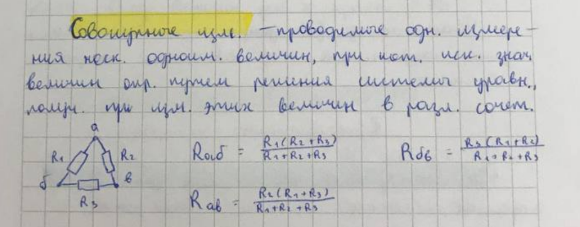 Совокупные изм. – проводимые одн. измере-
ния неск. одноим. величин, при кот. иск. знач.
величин опр. путем решения системы уравн.,
получ. при изм. этих величин в разл. сочет.
а
R1 R2
б в
R3
Rаб = R1(R2+R3) / R1+R2+R3
Rбв = R3(R1+R2) / R1+R2+R3
Rав = R2(R1+R3) / R1+R2+R3